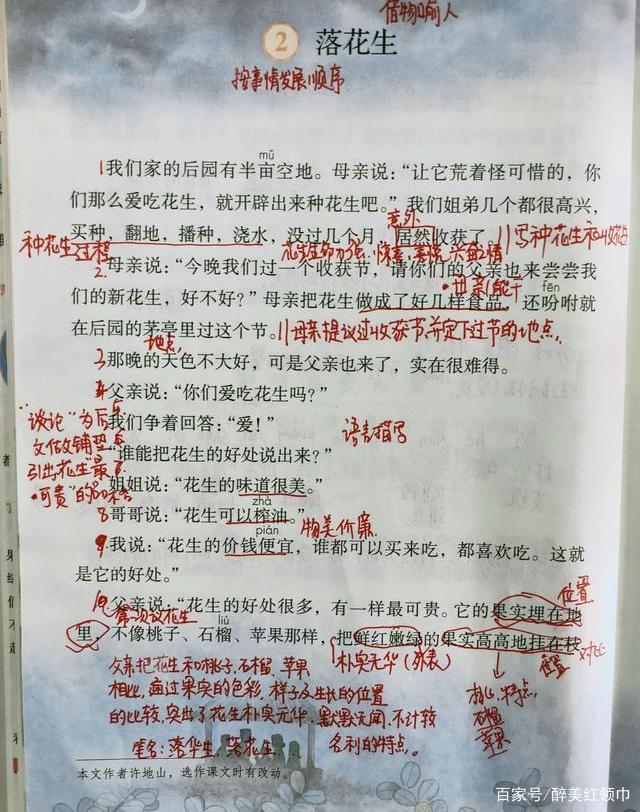 借物喻人
2 落花生
按事情发展顺序
mǔ
1我们家的后园有半亩空地。母亲说：“让它荒着怪可惜的，你
们那么爱吃花生，就开辟出来种花生吧。”我们姐弟几个都很高兴，
意外
买种，翻地，播种，浇水，没过几个月，居然收获了。//写种花生和收获花生
种花生过程
花生生命力强
2母亲说：“今晚我们过一个收获节，请你们的父亲也来尝尝我
母亲能干
fēn
们的新花生，好不好？”母亲把花生做成了好几样食品，还吩咐就
在后园的茅亭里过这个节。//母亲提议过收获节，并定下过节的地点。
地点
3那晚的天色不大好，可是父亲也来了，实在很难得。
4父亲说：“你们爱吃花生吗？”
5我们争着回答：“爱！”
“谈论”为后
文做铺垫
引出花生最
可贵的
语言描写
6“谁能把花生的好处说出来？”
7姐姐说：“花生的味道很美。”
zhà
8哥哥说：“花生可以榨油。”
物美价廉
pián
9我说：“花生的价钱便宜，谁都可以买来吃，都喜欢吃。这就
是它的好处。”
位置
10父亲说：“花生的好处很多，有一样最可贵。它的果实埋在地
第一次议花生
liú
里，不像桃子、石榴、苹果那样，把鲜红嫩绿的果实高高地挂在枝
对比
朴实无华（外表）
位置
父亲把花生和桃子、石榴、苹果
相比，通过果实的色彩，样子及生长的位置
的比较，突出了花生朴实无华、默默无闻、不计较
名利的特点。
桃子特点
石榴
苹果
笔名：落华生 落花生
本文作者许地山，选作课文时有改动。
百家号/醉美红领巾